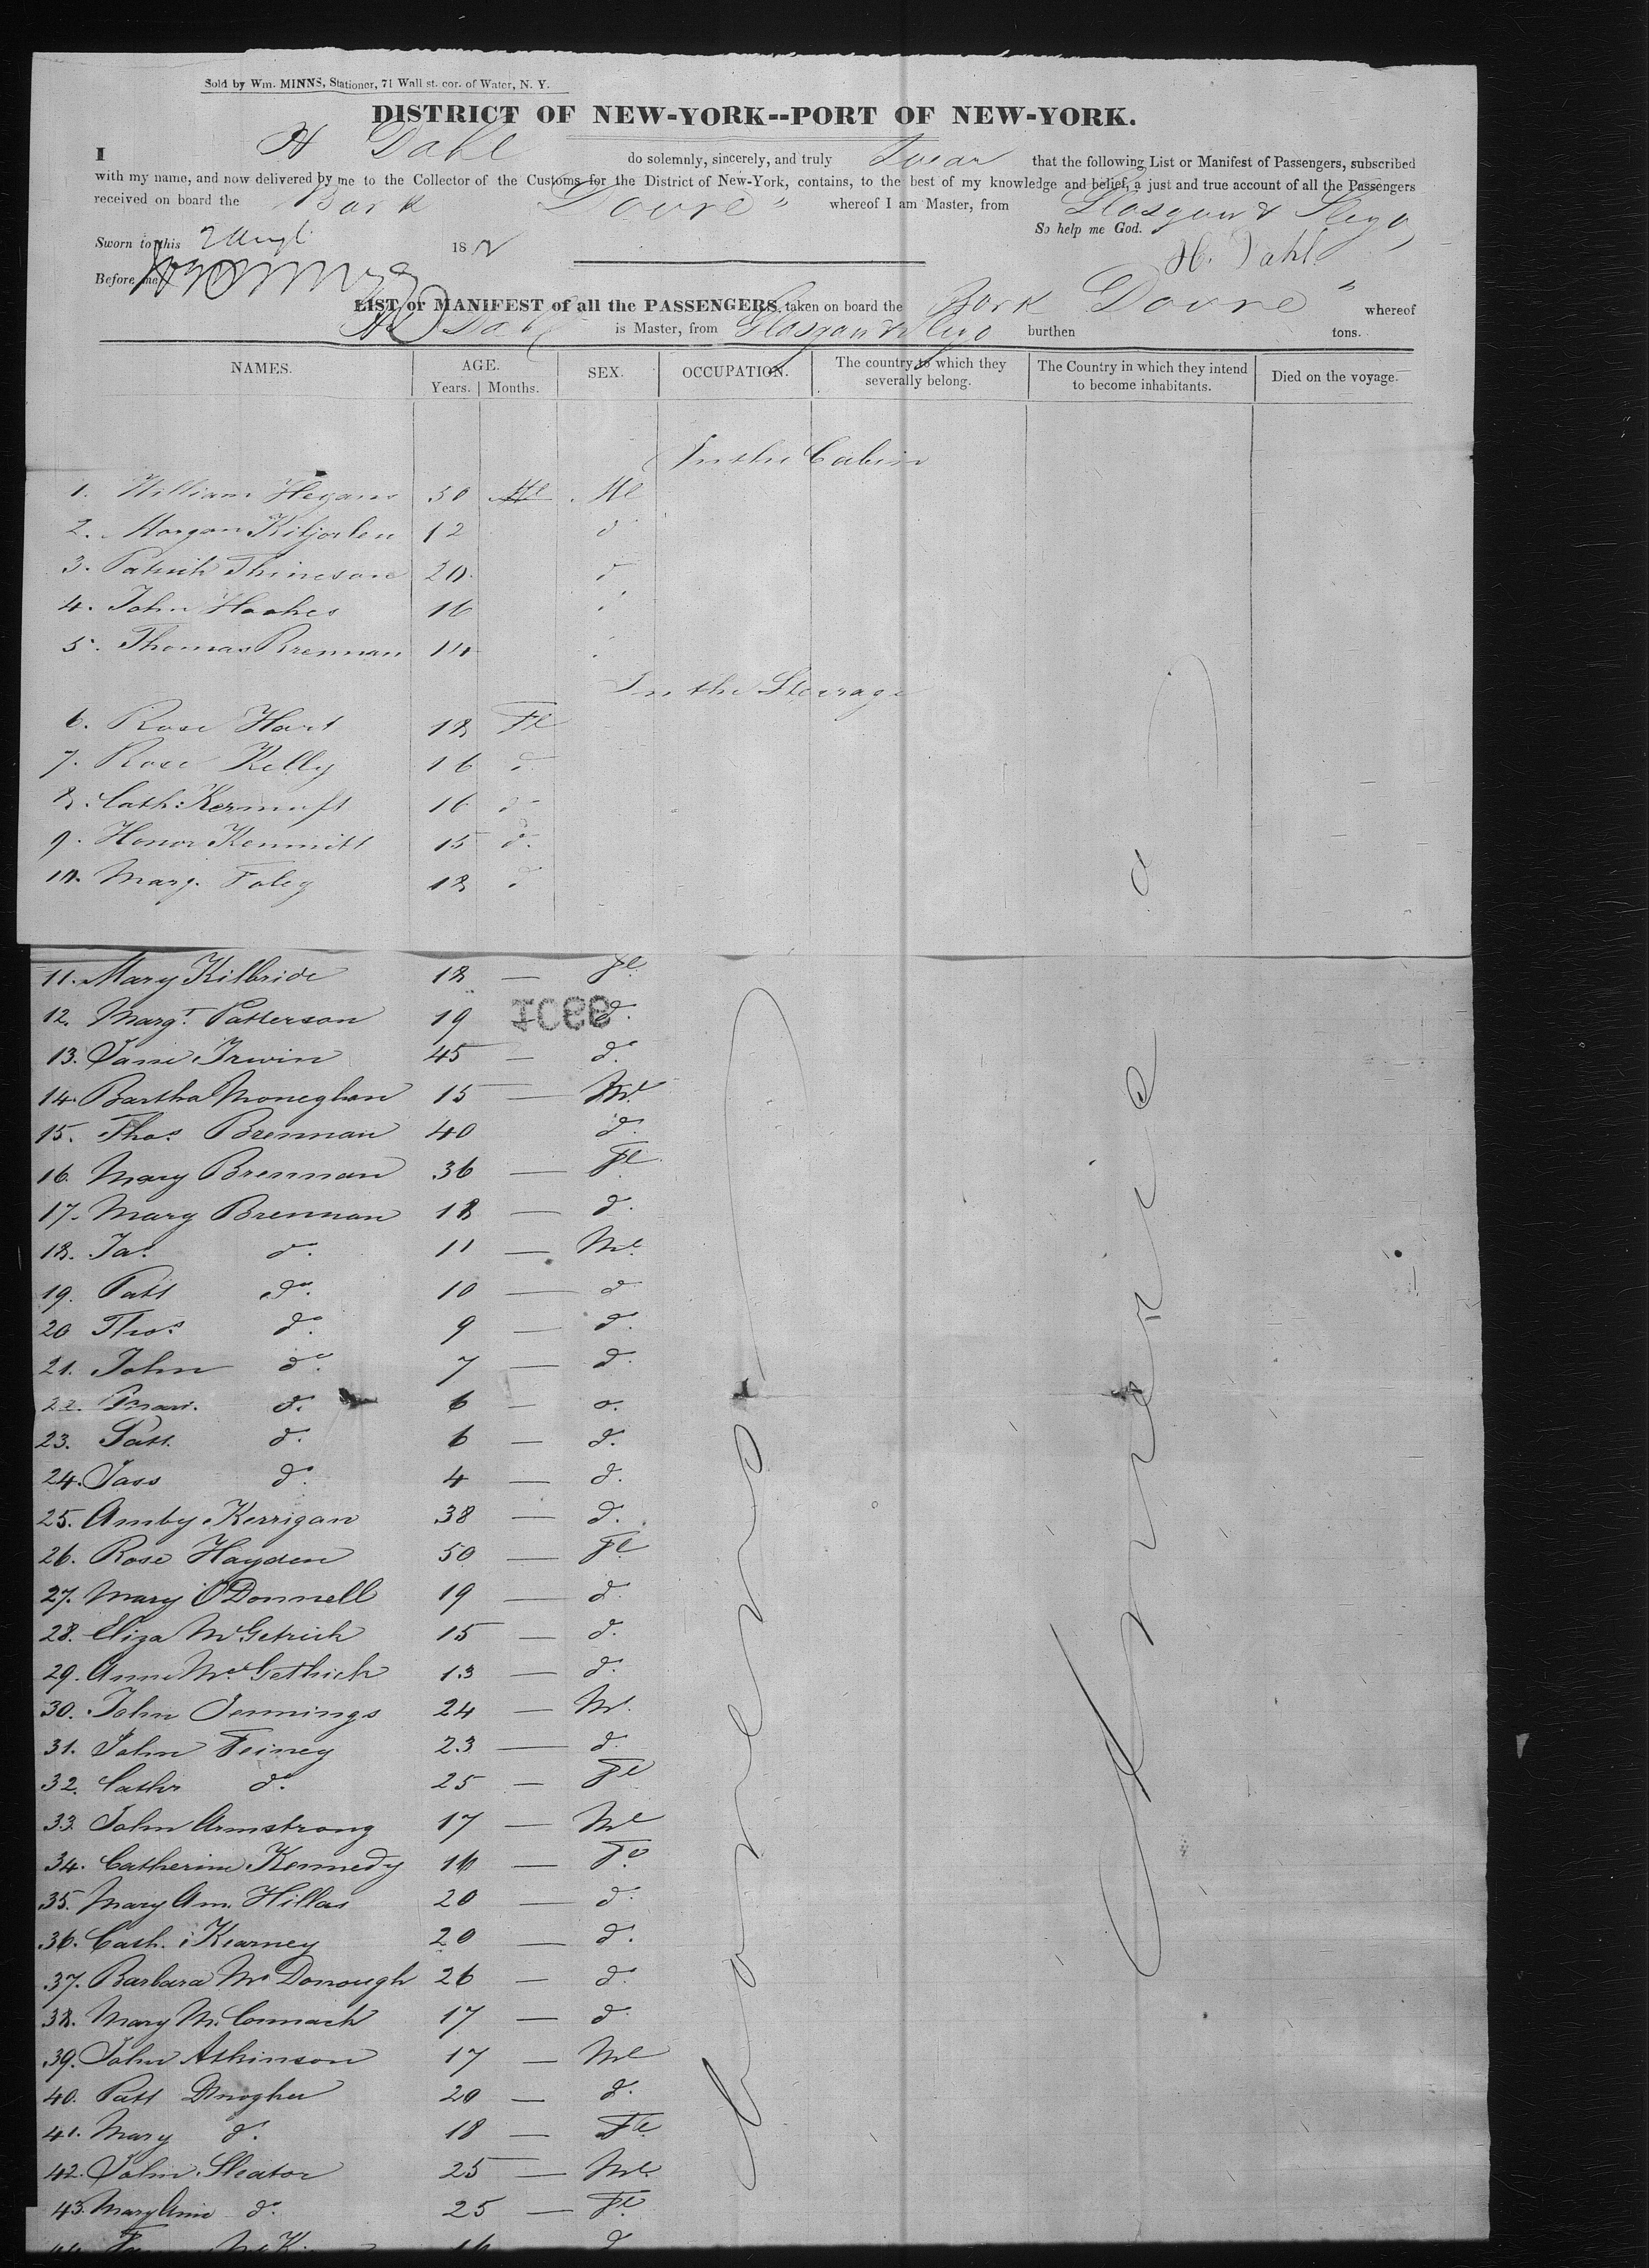 Sold by Wm. MINNS, Stationer, 71 Wall st. cor. of Water, N. Y.
DISTRICT OF NEW-YORK--PORT OF NEW-YORK.
I H Dahl do solemnly, sincerely, and truly Swear that the following List or Manifest of Passengers, subscribed
with my name, and now delivered by me to the Collector of the Customs for the District of New-York, contains, to the best of my knowledge and belief, a just and true account of all the Passengers
received on board the Bark Dovre" whereof I am Master, from Glasgow & Sligo
So help me God.
Sworn to this 2 Augt 18
H. Dahl
Before me
LIST or MANIFEST of all the PASSENGERS taken on board the Bark Dovre" whereof
H Dahl is Master, from Glasgow & Sligo burthen tons.
NAMES. AGE. Years. Months. SEX. OCCUPATION. The country to which they severally belong. The Country in which they intend to become inhabitants. Died on the voyage.
In the Cabin
1. William Hegans 50 Ml Ml
2. Morgan 12 do
3. Patrick 20. do
4. John Hoohes 16
5. Thomas Brennan 14
In the Steerage
6. Rose Hart 18 Fl
7. Rose Kelly 16 do
8. Cath: 16 do
9. Honor Kemmitt 15 do.
10. Marg. Foley 18 do
11. Mary Kilbride 18 — Fl.
12. Margt. Patterson 19 do.
13. Jane Irwin 45 — do.
14. Bartha Moneghan 15 — Ml
15. Thos. Brennan 40 do.
16. Mary Brennan 36 — Fl
17. Mary Brennan 18 — do.
18. Jas. do. 11 — Ml.
19. Patt do. 10 — do
20 Thos. do. 9 — do.
21. John do. 7 — do.
22. do. 6 — do.
23. Patt. do. 6 — do.
24. Jass do. 4 — do.
25. Amby Kerrigan 38 — do.
26. Rose Hayden 50 — Fl
27. Mary O'Donnell 19 — do.
28. Eliza McGetrick 15 — do.
29. Anne Mc.Gethick 13 — do.
30. John Jennings 24 — Ml.
31. John Feiney 23 — do.
32. Cathr do. 25 — Fl
33. John Armstrong 17 — Ml
34. Catherine Kennedy 16 — Fl.
35. Mary Ann. Hillas 20 — do.
36. Cath. Kearney 20 — do.
37. Barbara McDonough 26 — do.
38. Mary McCormack 17 — do.
39. John Atkinson 17 — Ml
40. Patt Dnogher 20 — do.
41. Mary do. 18 — Fl.
42. John Sleator 25 — Ml.
43. Mary Anne do. 25 — Fl.
America